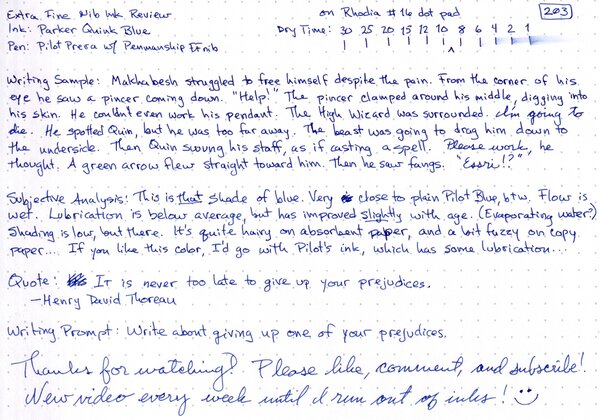 Extra Fine Nib Ink Review on Rhodia #16 dot pad 203
Ink: Parker Quink Blue Dry Time: 30 25 20 15 12 10 8 6 4 2 1
Pen: Pilot Prera w/ Penmanship EF nib
Writing Sample: Makhabesh struggled to free himself despite the pain. From the corner of his
eye he saw a pincer coming down. "Help!" The pincer clamped around his middle, digging into
his skin. He couldn't even work his pendant. The High Wizard was surrounded. I'm going to
die. He spotted Quin, but he was too far away. The beast was going to drag him down to
the underside. Then Quin swung his staff, as if casting a spell. Please work, he
thought. A green arrow flew straight toward him. Then he saw fangs. "Essri!?"
Subjective Analysis: This is that shade of blue. Very close to plain Pilot Blue, btw. Flow is
wet. Lubrication is below average, but has improved slightly with age. (Evaporating water?)
Shading is low, but there. It's quite hairy on absorbent paper, and a bit fuzzy on copy
paper... If you like this color, I'd go with Pilot's ink, which has some lubrication...
Quote: It is never too late to give up your prejudices.
—Henry David Thoreau
Writing Prompt: Write about giving up one of your prejudices.
Thanks for watching! Please like, comment, and subscribe!
New video every week until I run out of inks!